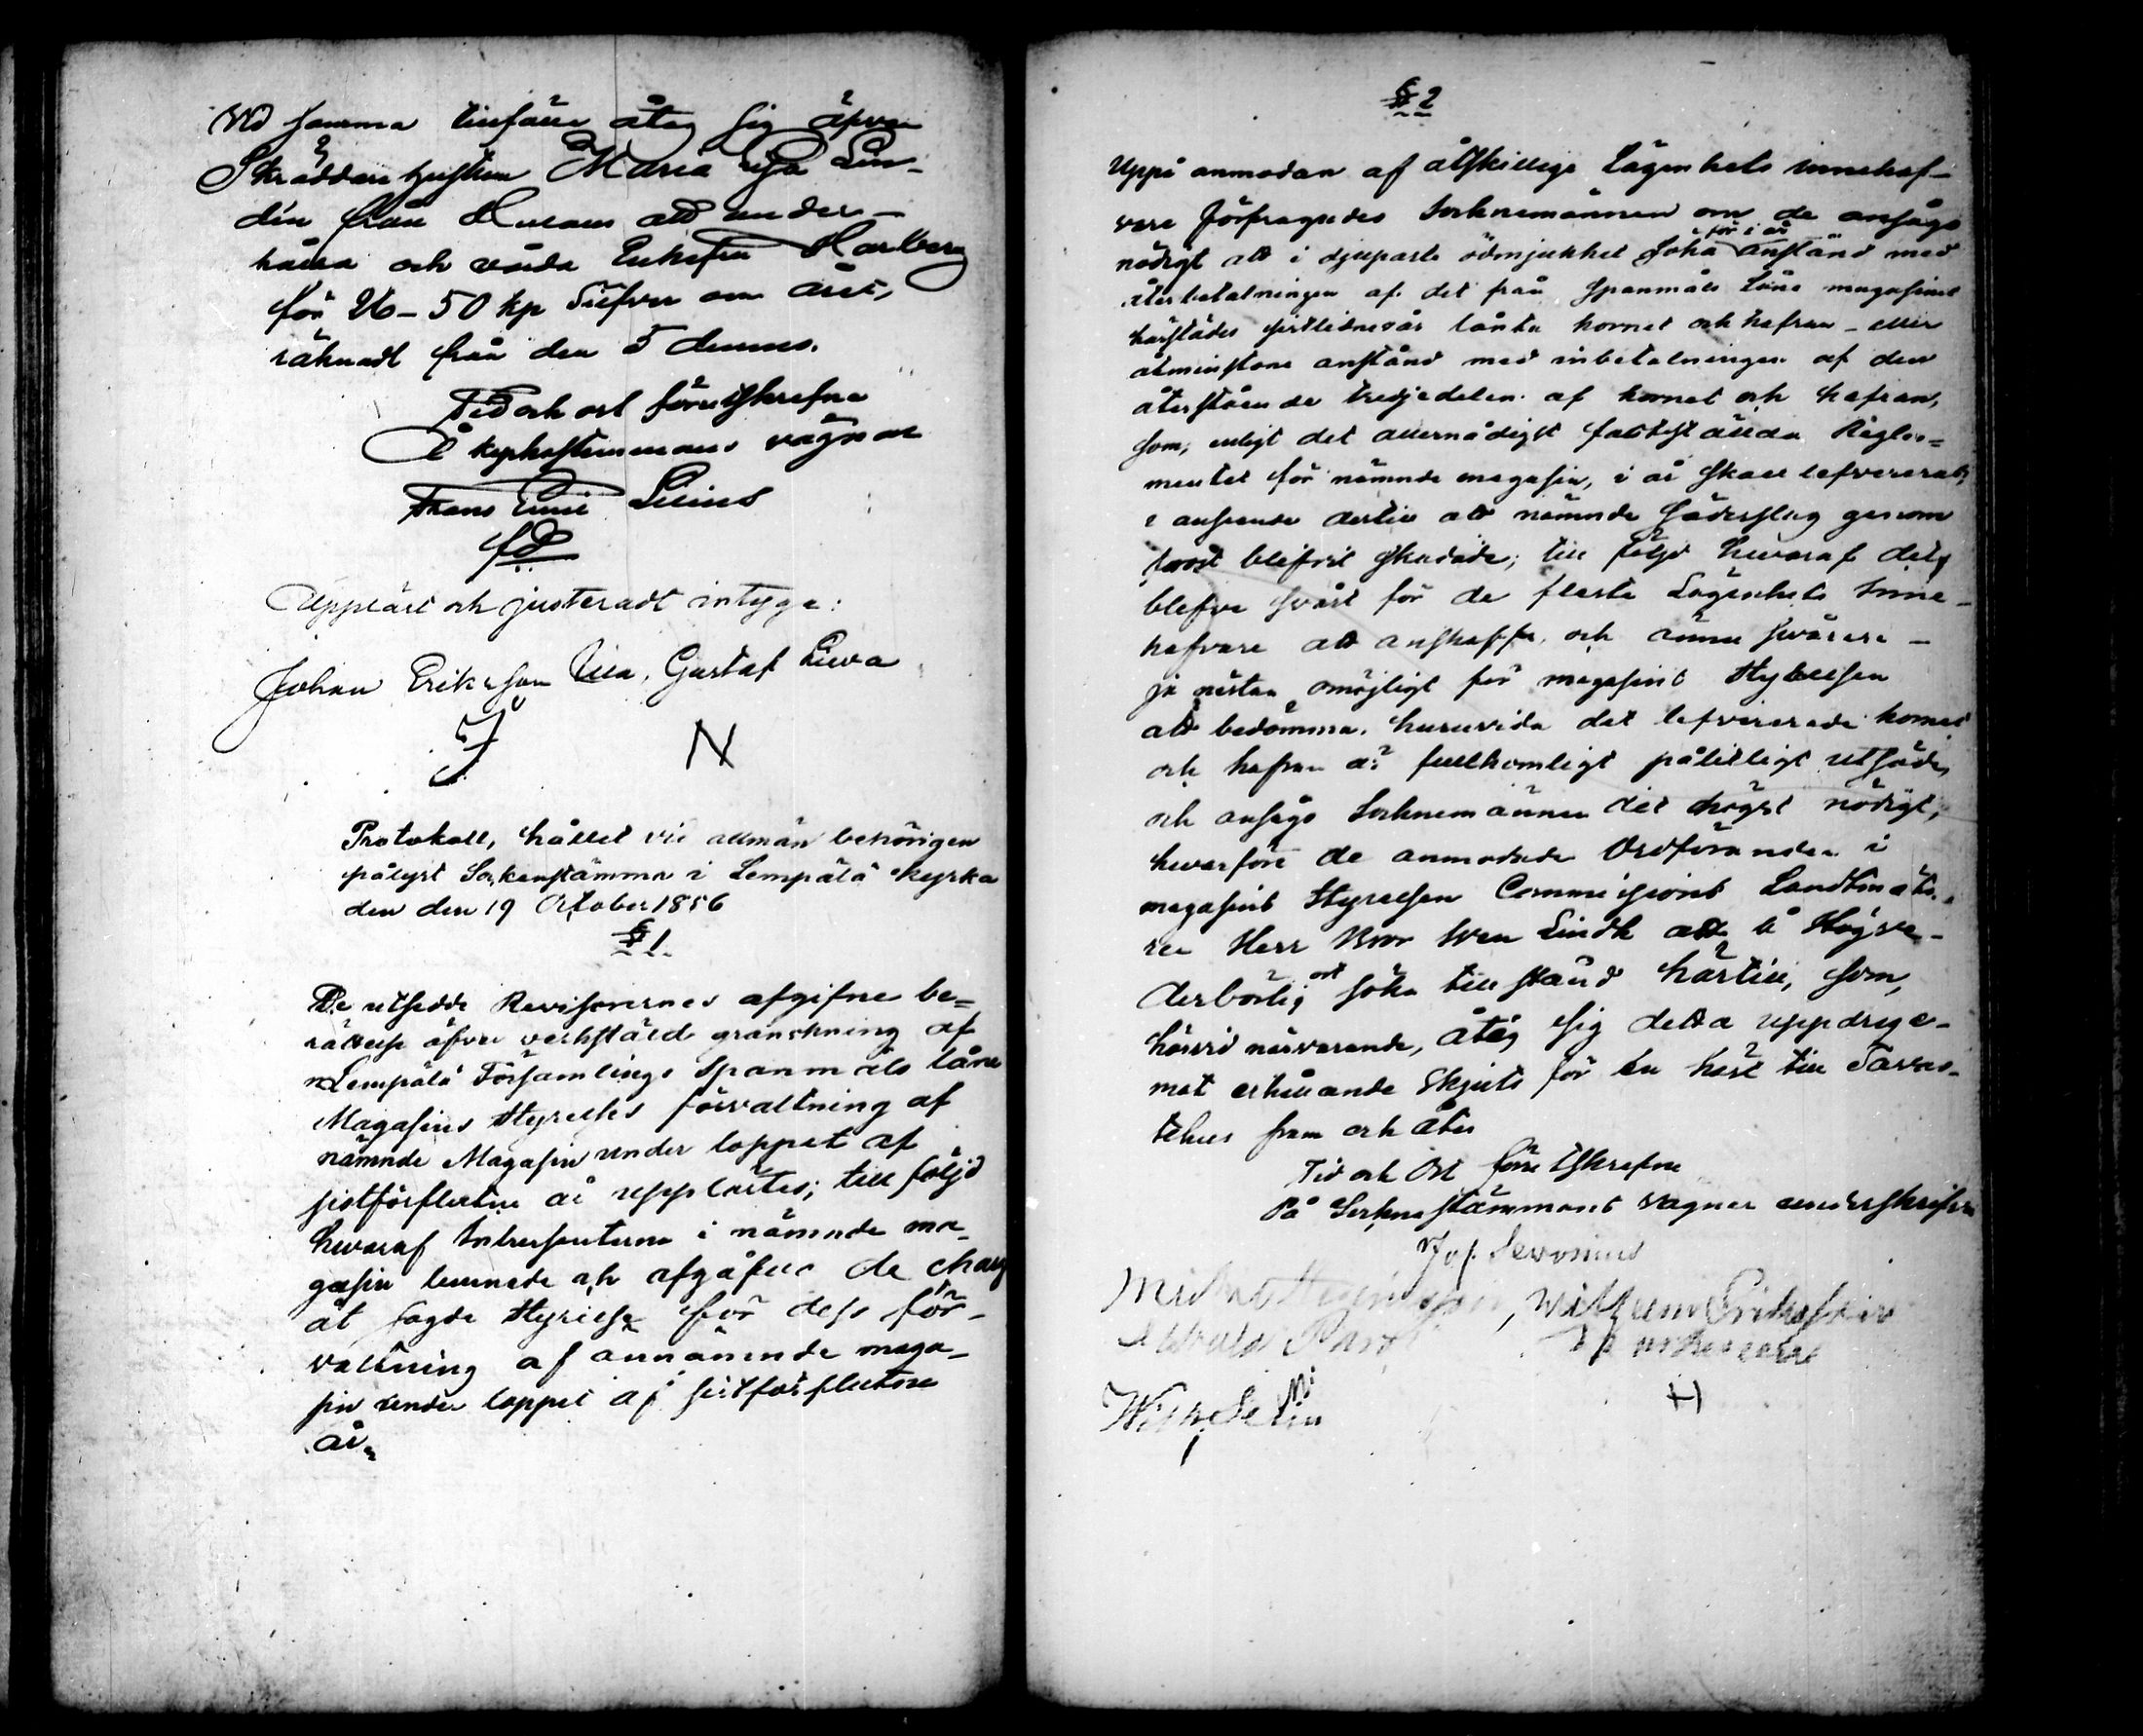 Vid samma tillfälle åtog sig äfven
Skräddare hustrun Maria Lisa Lin-
dén från att under-
hålla och vårda Enkefru Harlberg
för 26-50 kp Silfver om året,
räknadt från den 5 dennes.
Tid och ort förutskrefne
Å kyrkostemmans vägnar
Frans Emil Lilius
Uppläst och justeradt intyga:
Johan Eriksson Ulla, Gustaf Liuva
N
Protokoll, hållet vid allmän behörigen
pålyst Sockenstämma i Lempälä kyrka
den den 19 October 1856
§ 1.
De utsedde Revisorernes afgifne be=
rättelse öfver verkställd granskning af
Lempälä Församlings Spanmåls låne
Magasins Styrelses förvaltning af
nämnde Magasin under loppet af
sistförflutne år upplästes; till följd
hvaraf Intressenterne i nämnde ma-
gasin lemnade och afgåfvo de charg
åt sagde Styrelse för dess för-
valtning af omnämnde maga-
sin under loppet af sistförflutne
år.
§ 2
Uppå anmodan af åtskillige Lägenhets innehaf-
vare förfrågades Socknemännen om de ansågo
nödigt att i djupaste ödmjukhet söka för i år anstånd med
återbetalningen af det från Spanmåls Låne magasinet
härstädes sistlidne vår lånta kornet och hafran - eller
åtminstone anstånd med inbetalningen af den
återstående tredjedelen af kornet och hafran,
som, enligt det allernådigst fastställda Regle=
mentet för nämnde magasin, i år skall lefvereras,
i anseende dertill att nämnde sädesslag genom
frost blifvit skadade; till följd hvaraf det
blefve svårt för de fleste Lägenhets Inne-
hafvare att anskaffa och ännu svårare -
ja nästan omöjligt för magasins Styrelsen
att bedömma, huruvida det lefvererade kornet
och hafran är fullkomligt pålitligt utsäde,
och ansågo Socknemännen det högst nödigt,
hvarföre de anmodade Ordföranden i
magasins Styrelsen Commissions Landtmäta-
ren Herr Bror Sven Lindh att å Högve-
derbörlig ort söka tillstånd härtill, som,
härvid närvarande, åtog sig detta uppdrag e-
mot erhållande Skjuts för en häst till Tavas-
tehus fram och åter
Tid och Ort förutskrefne
På Sockne stämmans vägnar underskrifva
Jos.
Wilhelm
H